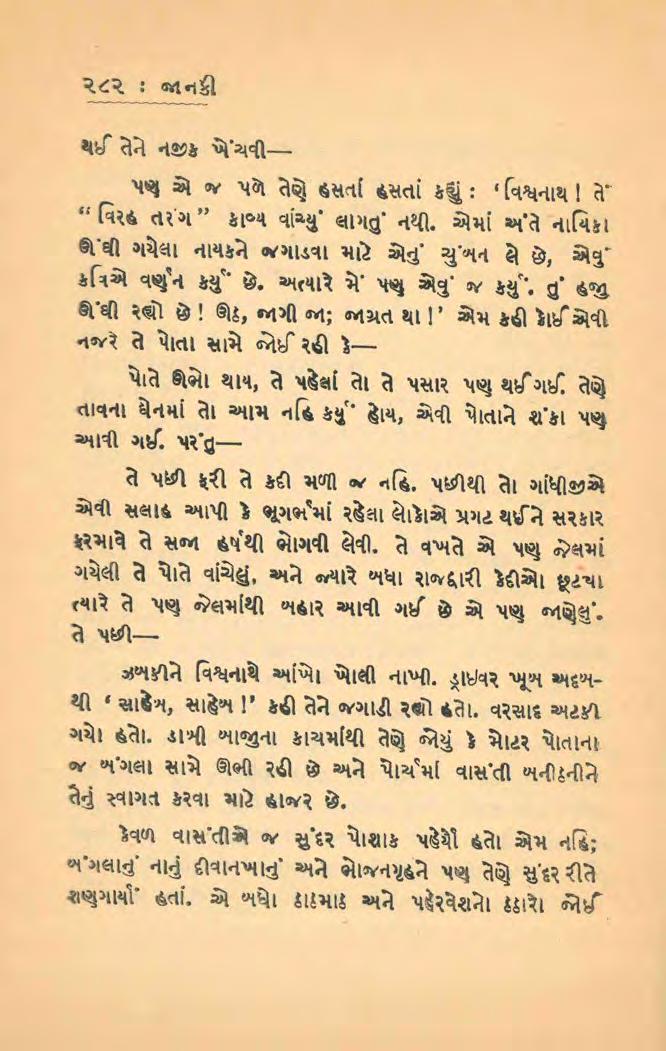 ૨૮૨ : જાનકી
થઈ તેને નજીક ખેંચવી—
પણ એ જ પળે તેણે હસતાં હસતાં કહ્યું : ‘વિશ્વનાથ ! તેં
“વિરહ તરંગ” કાવ્ય વાંચ્યું લાગતું નથી. એમાં અંતે નાયિકા
ઊંઘી ગયેલા નાયકને જગાડવા માટે એનું ચુંબન લે છે, એવું
કવિએ વર્ણન કર્યું છે. અત્યારે મેં પણ એવું જ કર્યું. તું હજુ
ઊંઘી રહ્યો છે ! ઊઠ, જાગી જા; જાગ્રત થા !’ એમ કહી કોઈ એવી
નજરે તે પોતા સામે જોઈ રહી કે—
પોતે ઊભો થાય, તે પહેલાં તો તે પસાર પણ થઈ ગઈ. તેણે
તાવના ઘેનમાં તો આમ નહિ કર્યું હોય, એવી પોતાને શંકા પણ
આવી ગઈ. પરંતુ—
તે પછી ફરી તે કદી મળી જ નહિ. પછીથી તો ગાંધીજીએ
એવી સલાહ આપી કે ભૂગર્ભમાં રહેલા લોકોએ પ્રગટ થઈને સરકાર
ફરમાવે તે સજા હર્ષથી ભોગવી લેવી. તે વખતે એ પણ જેલમાં
ગયેલી તે પોતે વાંચેલું, અને જ્યારે બધા રાજદ્વારી કેદીઓ છૂટયા
ત્યારે તે પણ જેલમાંથી બહાર આવી ગઈ છે એ પણ જાણેલું.
તે પછી—
ઝબકીને વિશ્વનાથે આંખો ખોલી નાખી. ડ્રાઇવર ખૂબ અદબ-
થી ‘સાહેબ, સાહેબ !’ કહી તેને જગાડી રહ્યો હતો. વરસાદ અટકી
ગયો હતો. ડાબી બાજુના કાચમાંથી તેણે જોયું કે મોટર પોતાના
જ બંગલા સામે ઊભી રહી છે અને પોર્ચમાં વાસંતી બનીઠનીને
તેનું સ્વાગત કરવા માટે હાજર છે.
કેવળ વાસંતીએ જ સુંદર પોશાક પહેર્યો હતો એમ નહિ;
બંગલાનું નાનું દીવાનખાનું અને ભોજનગૃહને પણ તેણે સુંદર રીતે
શણગાર્યાં હતાં. એ બધો ઠાઠમાઠ અને પહેરવેશનો ઠઠારો જોઈ